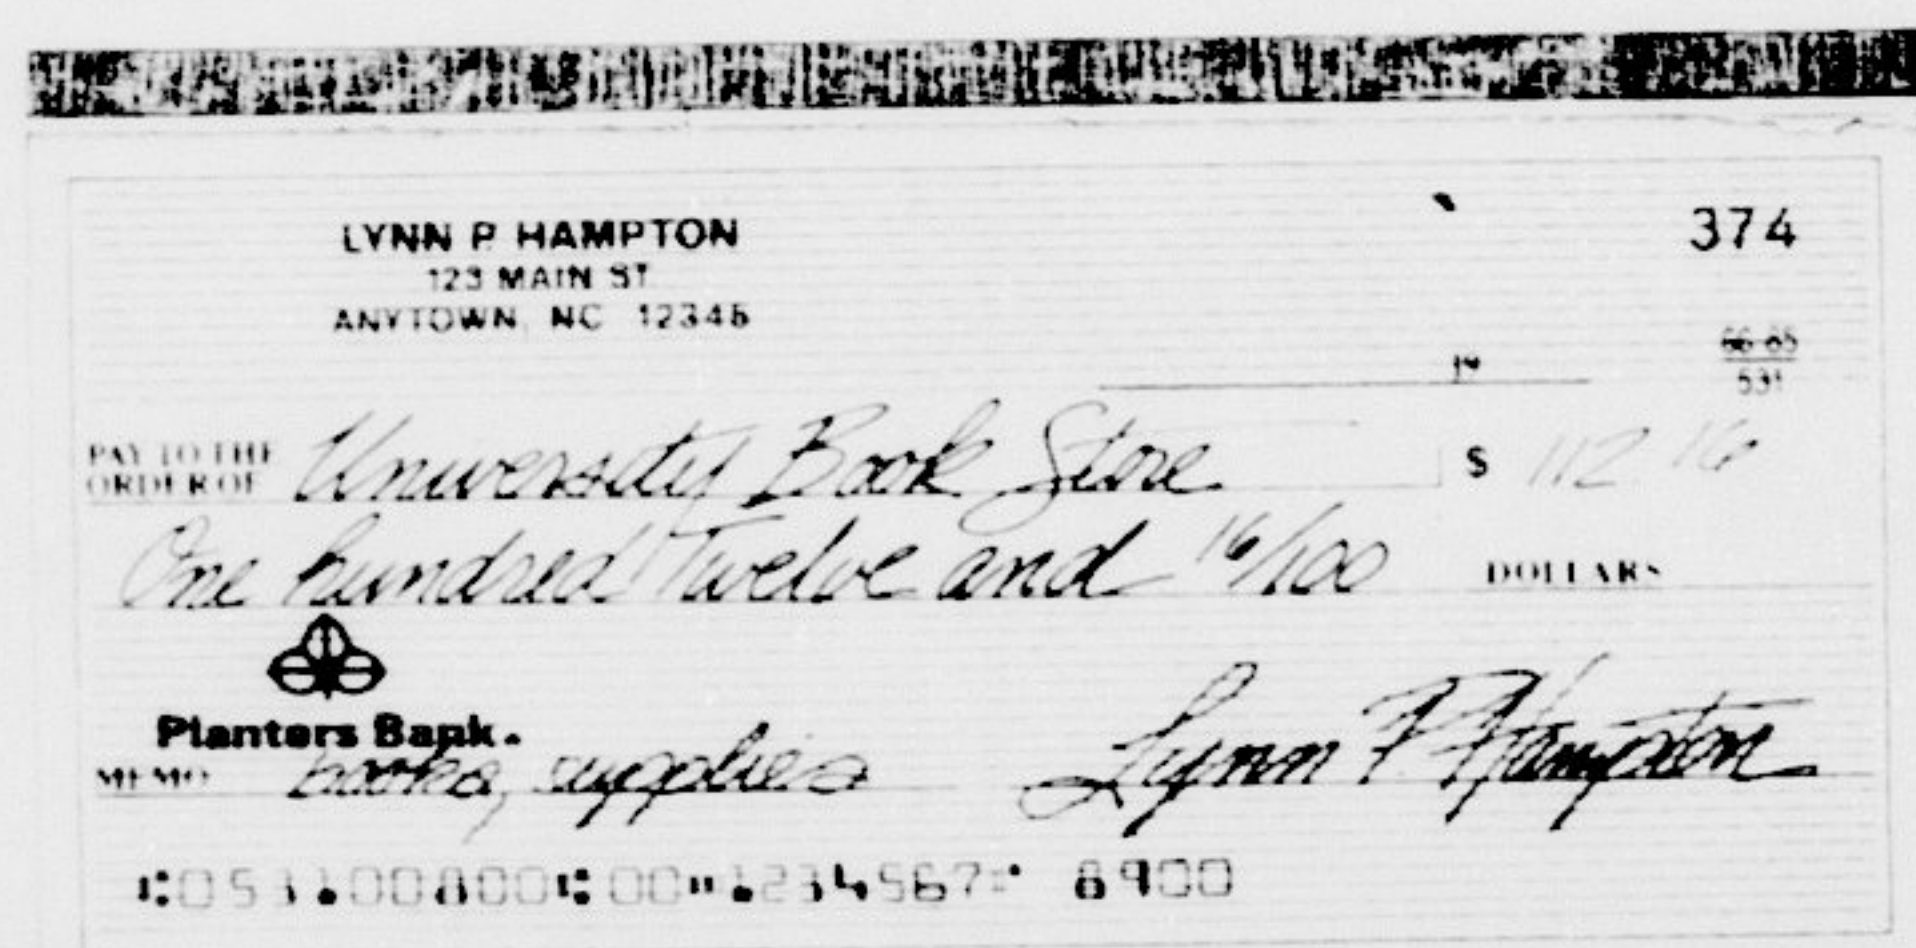 LYNN P. HAMPTON
123 MAIN ST.
ANYTOWN, NC 12345
374
66-85
531
19
PAY TO THE
ORDER OF University Book Store $ 112 16
One hundred Twelve and 16/100 DOLLARS
Planters Bank.
MEMO books, supplies Lynn P Hampton
⑆053100800⑆00⑈1234567⑈ 8900